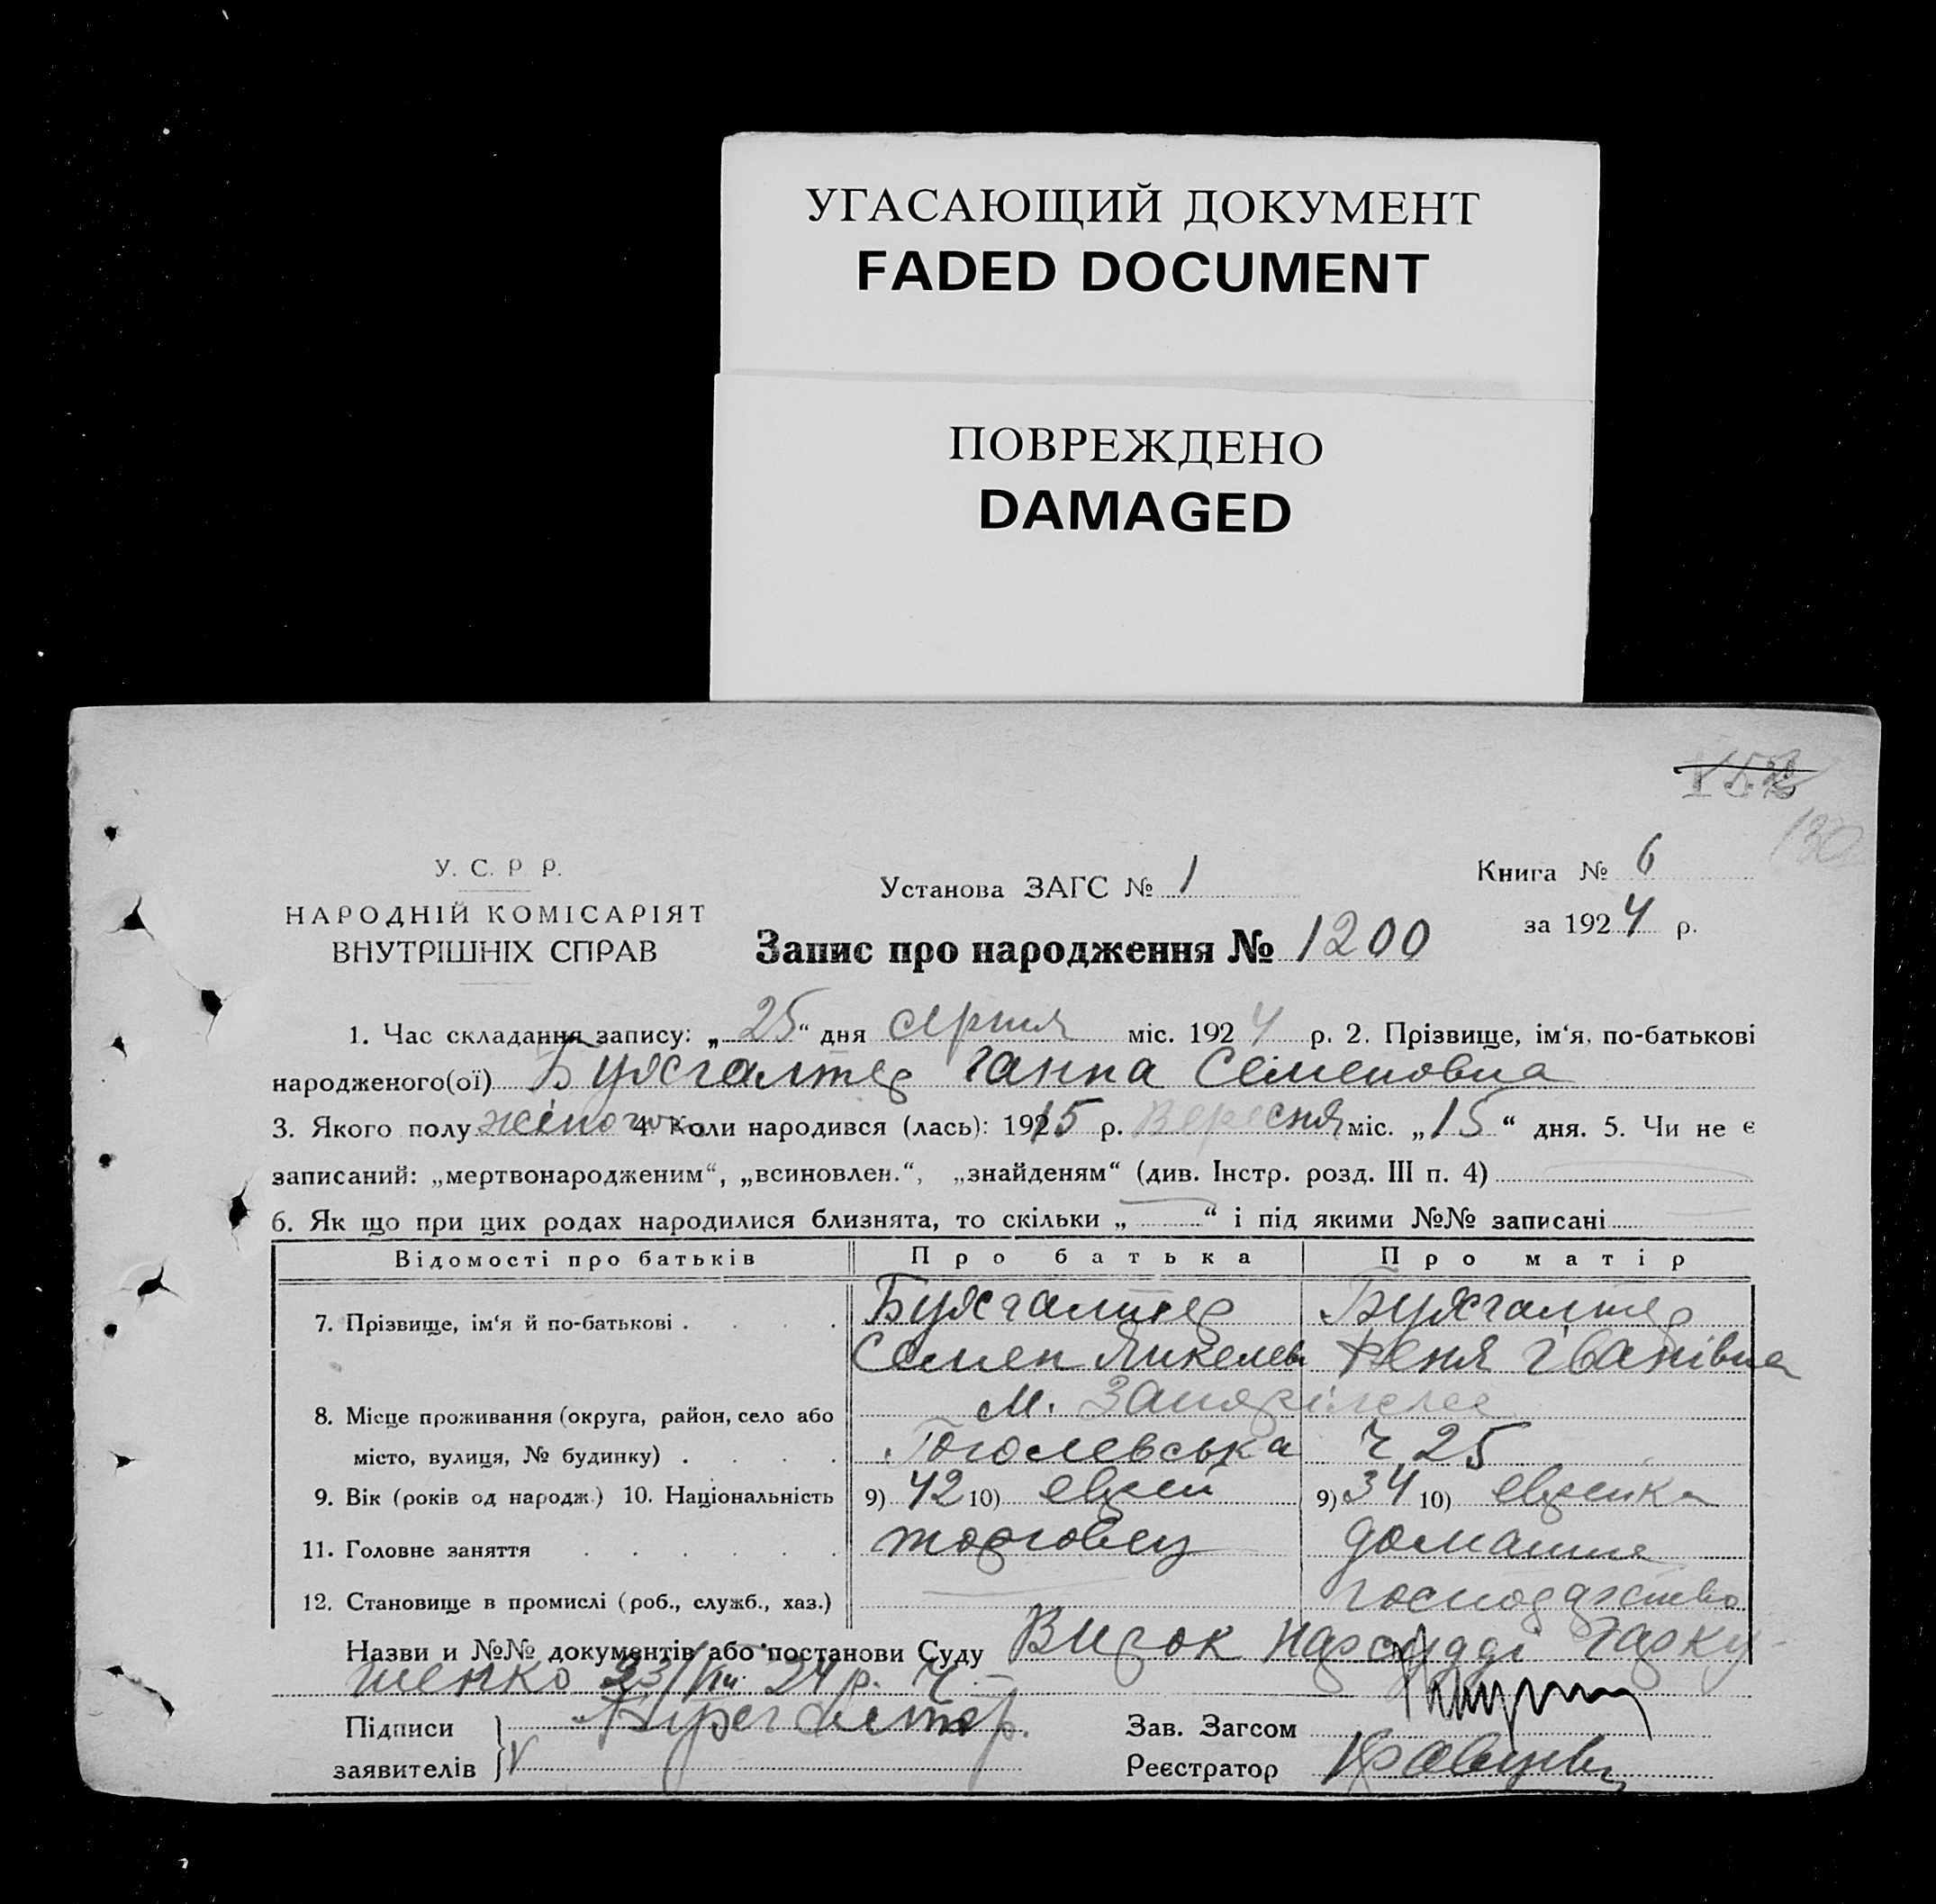 УГАСАЮЩИЙ ДОКУМЕНТ
FADED DOCUMENT
ПОВРЕЖДЕНО
DAMAGED
130
У. С. Р Р.
НАРОДНІЙ КОМІСАРІЯТ
ВНУТРІШНІХ СПРАВ
Установа ЗАГС № 1
Книга № 6
за 1924 р.
Запис про народження № 1200
1. Час складання запису: „25“ дня серпня міс. 1924 р. 2. Прізвище, ім‘я, по-батькові
народженого(ої) Бухгалтер Ганна Семеновна
3. Якого полу жіночого 4. Коли народився (лась): 1915 р. Вересня міс. „15“ дня. 5. Чи не є
записаний: „мертвонародженим“, „всиновлен.“, „знайденям“ (див. Інстр. розд. III п. 4)
6. Як що при цих родах народилися близнята, то скільки „ — “ і під якими №№ записані
Відомості про батьків Про батька Про матір
7. Прізвище, ім‘я й по-батькові Бухгалтер Бухгалтер
Семен Феня Іванівна
8. Місце проживання (округа, район, село або м. Запоріжжє
місто, вулиця, № будинку) Гоголевська ч 25
9. Вік (років од народж.) 10. Національність 9) 42 10) еврей 9) 34 10) еврейка
11. Головне заняття торговец домашнє
12. Становище в промислі (роб., служб., хаз.) господарство
Назви и №№ документів або постанови Суду Вирок Нарсудді Гарку-
шенко 23/VIII 24 р. ч. —
Підписи
Зав. Загсом
заявителів
Реєстратор